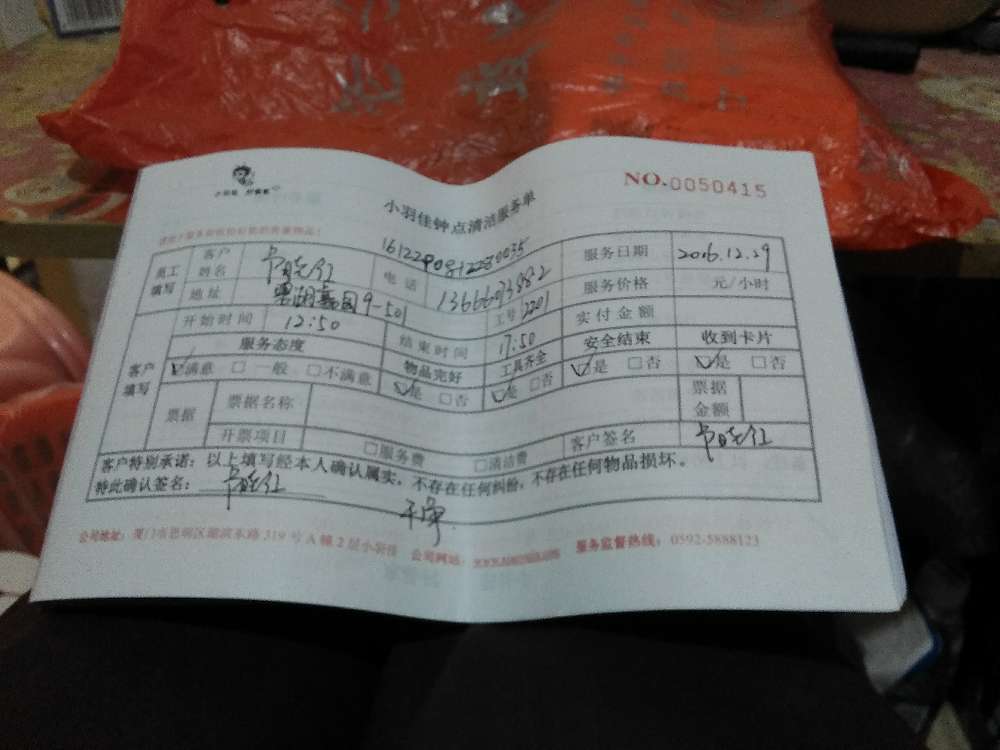 NO.0050415
小羽佳钟点清洁服务单
1612290812280035
员工填写 客户姓名 电话 13666093882 服务日期 2016.12.29
地址 9-501 工号 2201 服务价格 元/小时
开始时间 12:50 结束时间 17:50 实付金额
客户填写 服务态度 物品完好 工具齐全 安全结束 收到卡片
☑满意 □一般 □不满意 ☑是 □否 ☑是 □否 ☑是 □否 ☑是 □否
票据 票据名称 票据金额
开票项目 □服务费 □清洁费 客户签名
客户特别承诺：以上填写经本人确认属实，不存在任何纠纷，不存在任何物品损坏。
特此确认签名：
干净
公司地址：厦门市思明区湖滨东路319号A幢2层小羽佳 公司网站： 服务监督热线：0592-5888123